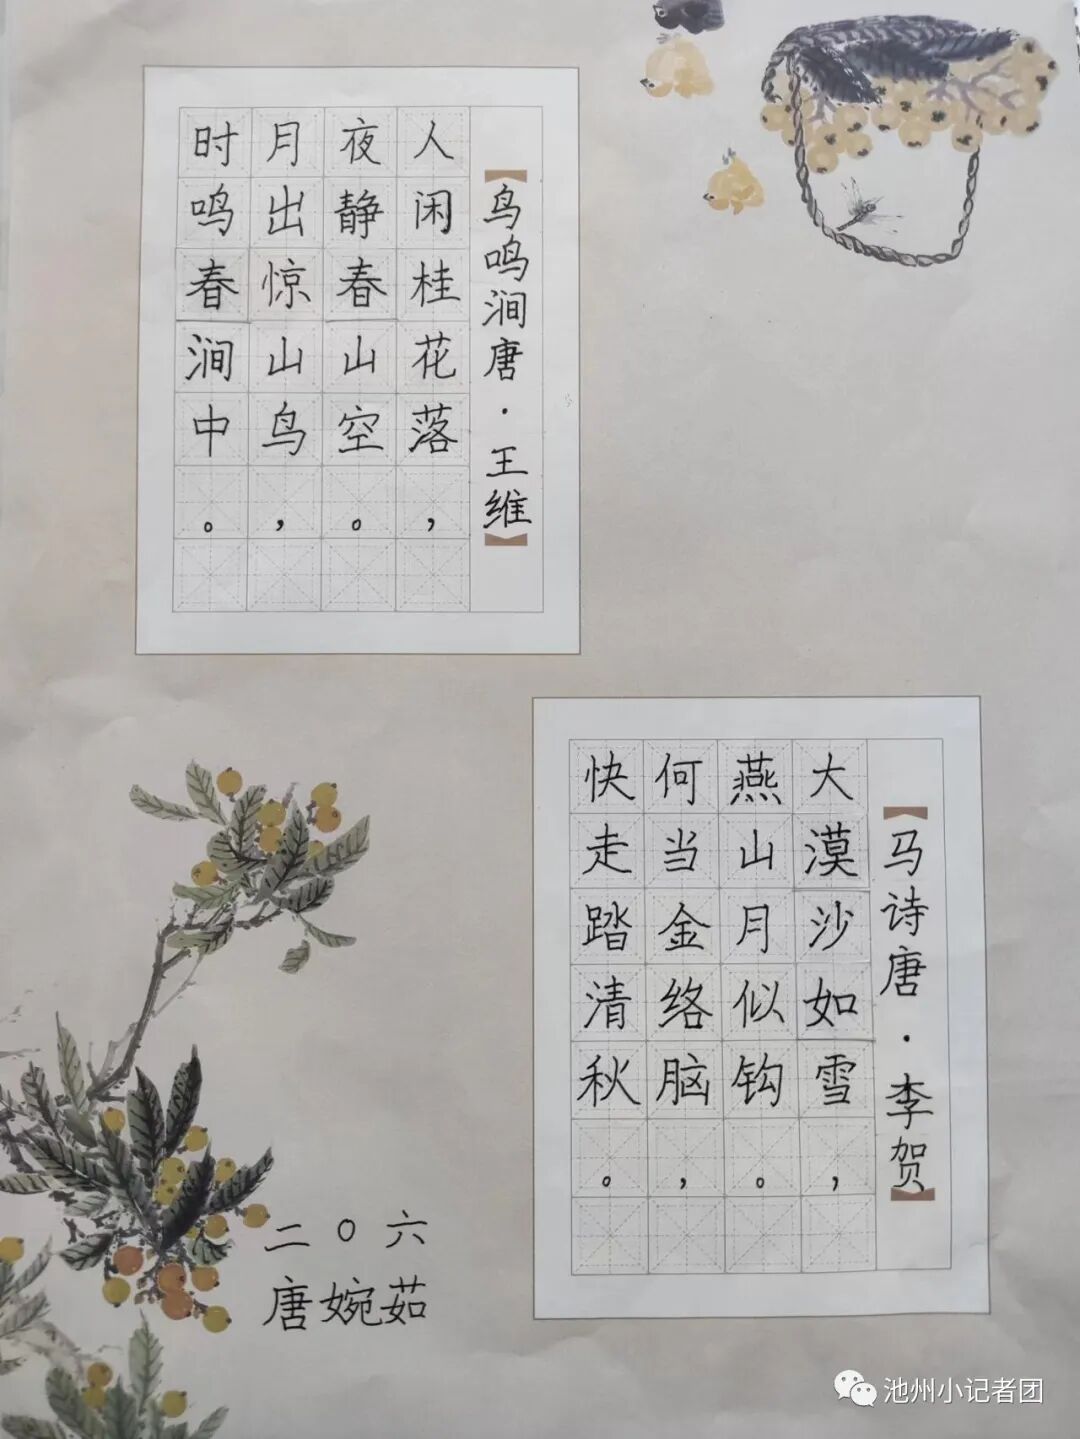 【鸟鸣涧唐·王维】
人闲桂花落，
夜静春山空。
月出惊山鸟，
时鸣春涧中。
【马诗唐·李贺】
大漠沙如雪，
燕山月似钩。
何当金络脑，
快走踏清秋。
二〇六
唐婉茹
池州小记者团